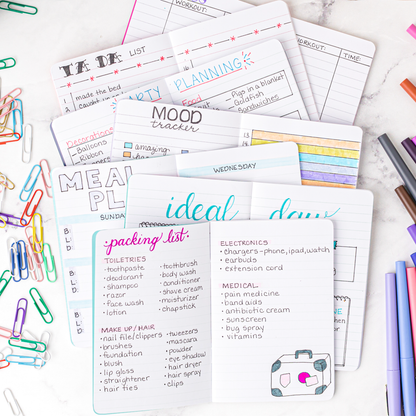 WORKOUT:
WORKOUT: TIME:
TA DA LIST
1. made the bed
2.
PARTY PLANNING
Decorations
Balloons
Ribbon
Food
Pigs in a blanket
Goldfish
Sandwiches
MOOD
tracker
amazing
MEAL
PLAN
SUNDAY
WEDNESDAY
B:
L:
D:
B:
L:
D:
ideal day
packing list
TOILETRIES
• toothpaste
• deodorant
• shampoo
• razor
• face wash
• lotion
• toothbrush
• body wash
• conditioner
• shave cream
• moisturizer
• chapstick
MAKE UP / HAIR
• nail file/clippers
• brushes
• foundation
• blush
• lip gloss
• straightener
• hair ties
• tweezers
• mascara
• powder
• eye shadow
• hair dryer
• hair spray
• clips
ELECTRONICS
• chargers - phone, ipad, watch
• earbuds
• extension cord
MEDICAL
• pain medicine
• band aids
• antibiotic cream
• sunscreen
• bug spray
• vitamins